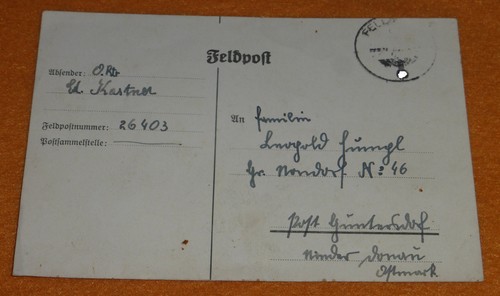 FELDPOST
Feldpost
Absender: O.Rtr
Ed. Kastner
Feldpostnummer: 26403
Postsammelstelle:
An Familie
Leopold
Gr. Nondorf № 46
Post Guntersdorf
Nieder Donau
Ostmark